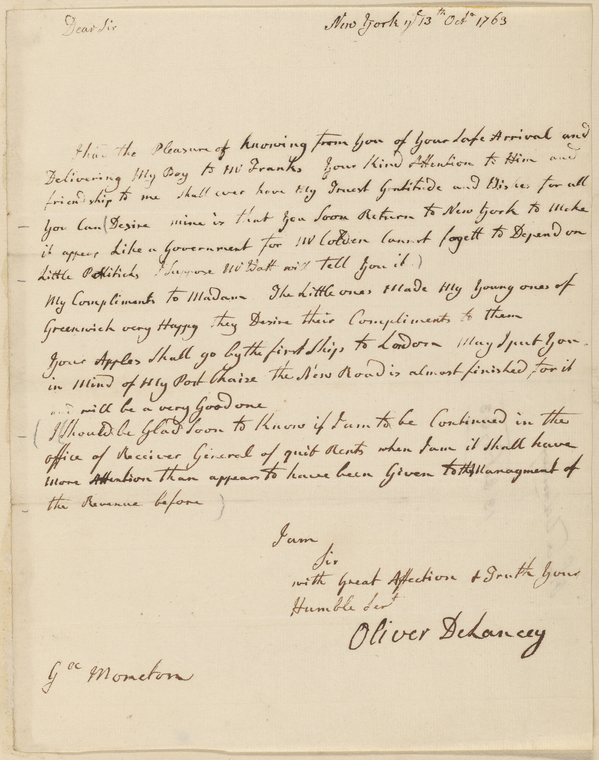 Dear Sir
New York ye 13th Octr 1763
I had the Pleasure of Knowing from You of Your Safe Arrival and
Delivering My Boy to Mr Franks Your Kind Attention to Him and
friendship to me Shall ever have My Truest Gratitude and Wishes for all
You Can (Desire mine is that You Soon Return to New York to Make
it appear Like a Government for Mr Colden Cannot forgett to Depend on
Little Politicks I Suppose Mr Watt will tell You it)
My Compliments to Madam The Little ones Made My Young ones of
Greenwich very Happy they Desire their Compliments to them
Your Apples Shall go by the first Ships to London May I put You
in Mind of My Post Chaise the New Road is almost finished for it
and will be a very Good one
(I Should be Glad Soon to Know if I am to be Continued in the
office of Receiver General of quit Rents when I am it Shall have
more Attention than appears to have been Given to the Managment of
the Revenue before)
I am
Sir
with Great Affection & Truth Your
Humble Sert
Oliver DeLancey
Monckton